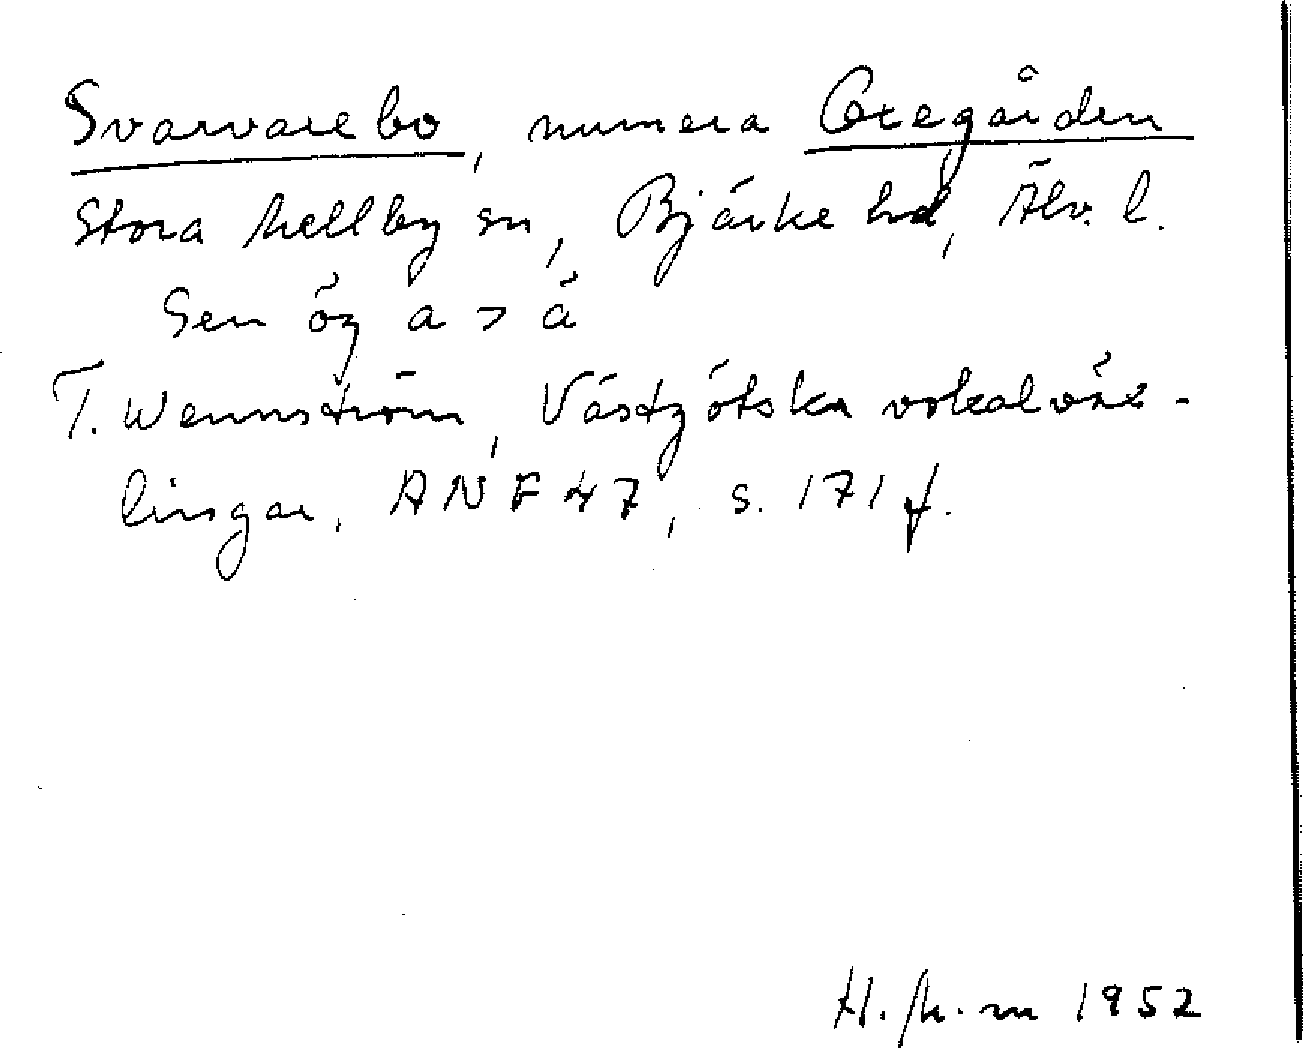 Svarvarebo, numera Oxegården
Stora Mellby sn, Bjärke hd, Älv. l.
Sen ög a > ä
T. Wennström, Västgötska vokalväx-
lingar, ANF 47, s. 171 f.
H. M-m 1952